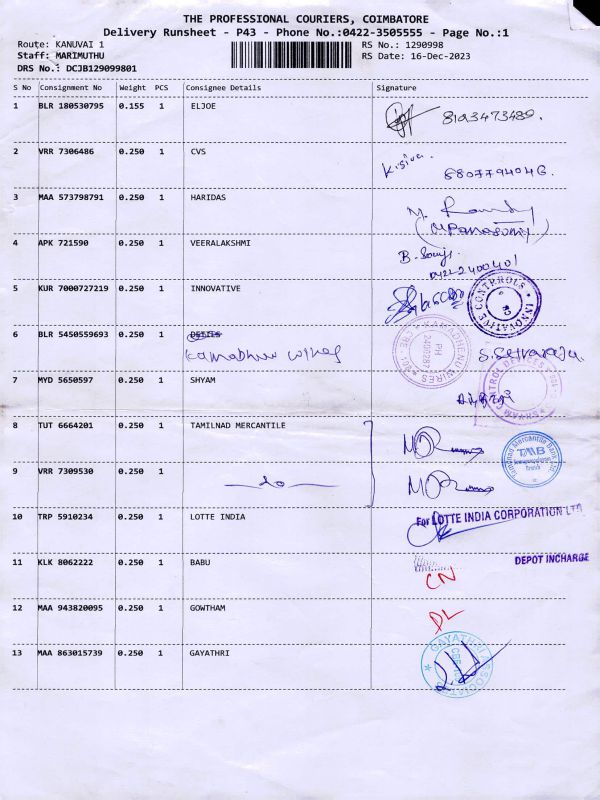 THE PROFESSIONAL COURIERS, COIMBATORE
Delivery Runsheet - P43 - Phone No.:0422-3505555 - Page No.:1
Route: KANUVAI 1 RS No.: 1290998
Staff: MARIMUTHU RS Date: 16-Dec-2023
DRS No.: DCJB129099801
S No Consignment No Weight PCS Consignee Details Signature
1 BLR 180530795 0.155 1 ELJOE
2 VRR 7306486 0.250 1 CVS K.Siva.
3 MAA 573798791 0.250 1 HARIDAS
4 APK 721590 0.250 1 VEERALAKSHMI
0421-2400401
5 KUR 7000727219 0.250 1 INNOVATIVE INNOVATIVE CONTROLS
6 BLR 5450559693 0.250 1
Kamadhenu wires KAMADHENU WIRES S. Selvaraju
7 MYD 5650597 0.250 1 SHYAM SHYAM CONTROL DEVICES
8 TUT 6664201 0.250 1 TAMILNAD MERCANTILE Tamilnad Mercantile Bank Ltd. TMB
9 VRR 7309530 0.250 1 do
10 TRP 5910234 0.250 1 LOTTE INDIA For LOTTE INDIA CORPORATION LTD
DEPOT INCHARGE
11 KLK 8062222 0.250 1 BABU CN
12 MAA 943820095 0.250 1 GOWTHAM DL
13 MAA 863015739 0.250 1 GAYATHRI GAYATHRI ASSOCIATES